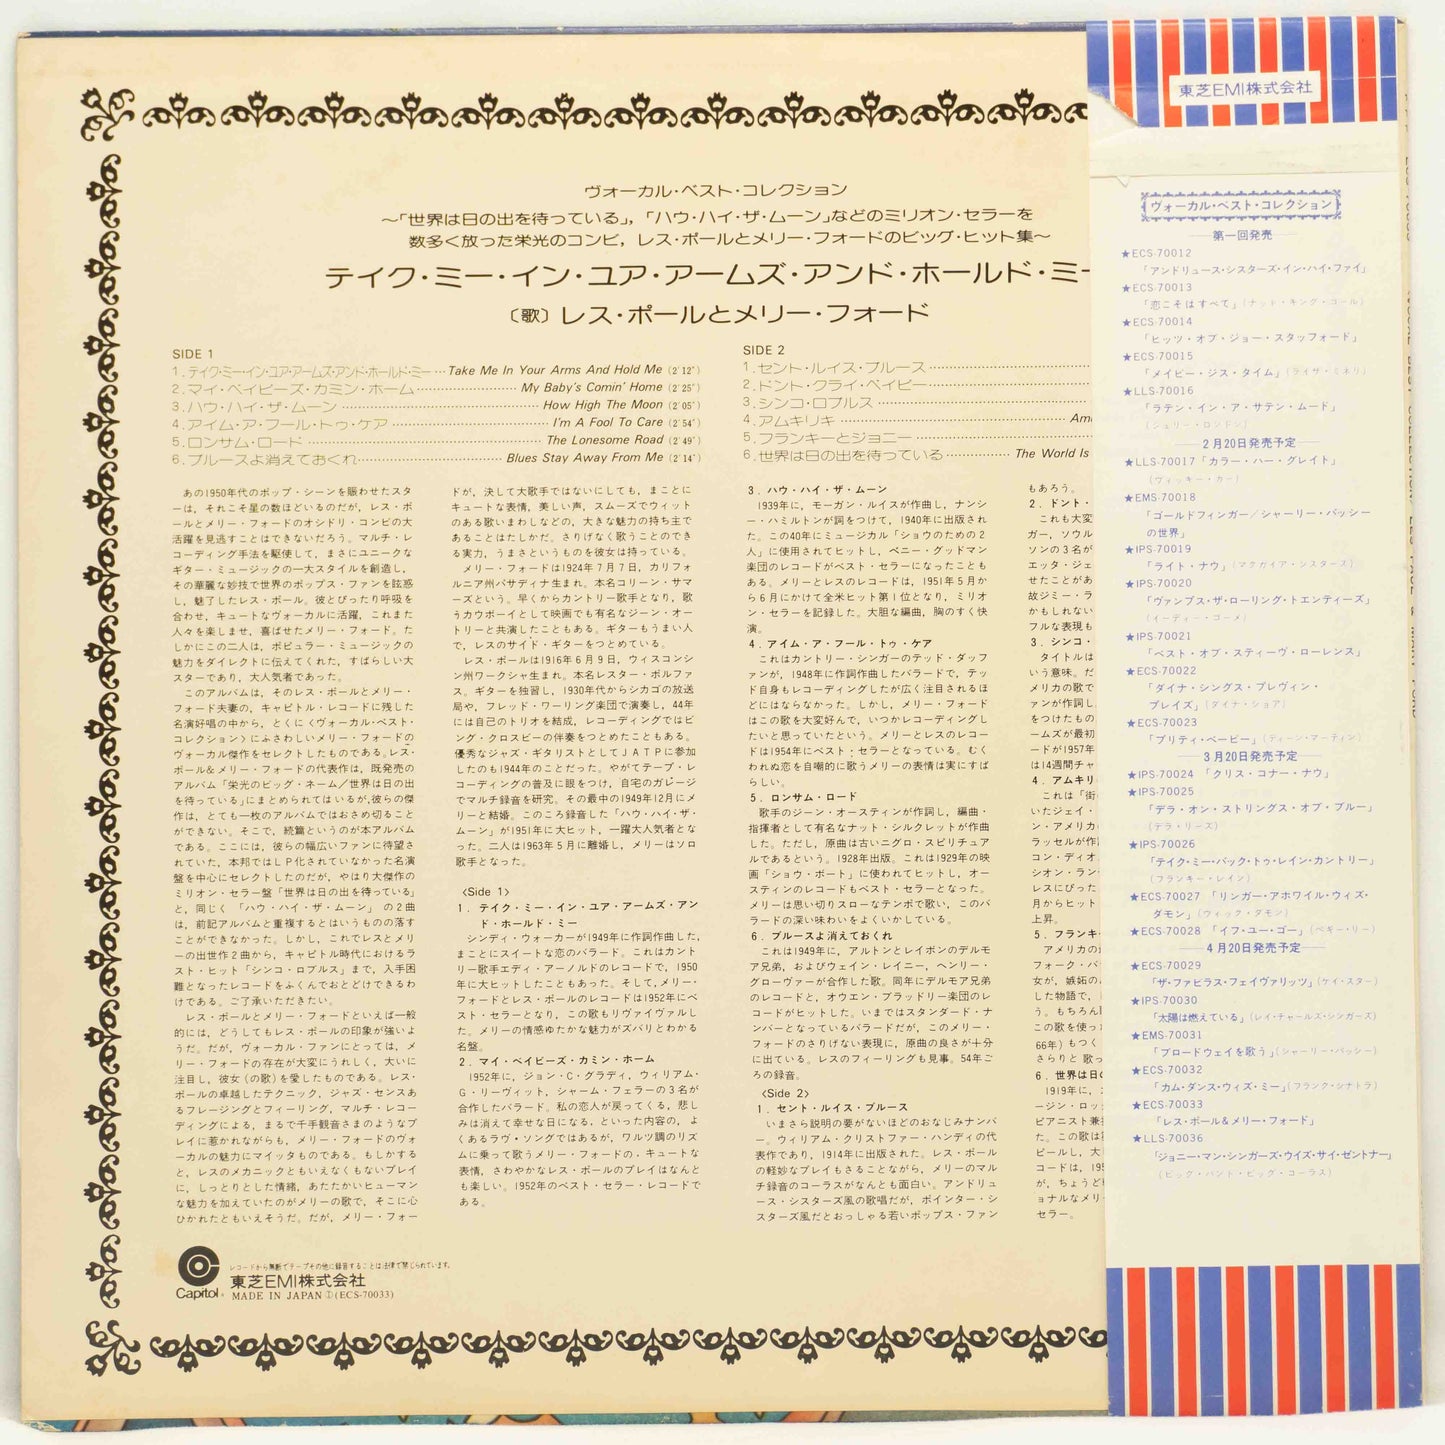 ヴォーカル・ベスト・コレクション
～「世界は日の出を待っている」，「ハウ・ハイ・ザ・ムーン」などのミリオン・セラーを
数多く放った栄光のコンビ，レス・ポールとメリー・フォードのビッグ・ヒット集～
テイク・ミー・イン・ユア・アームズ・アンド・ホールド・ミー
〔歌〕レス・ポールとメリー・フォード
SIDE 1
1．テイク・ミー・イン・ユア・アームズ・アンド・ホールド・ミー…Take Me In Your Arms And Hold Me (2′12″)
2．マイ・ベイビーズ・カミン・ホーム…My Baby's Comin' Home (2′25″)
3．ハウ・ハイ・ザ・ムーン…How High The Moon (2′05″)
4．アイム・ア・フール・トゥ・ケア…I'm A Fool To Care (2′54″)
5．ロンサム・ロード…The Lonesome Road (2′49″)
6．ブルースよ消えておくれ…Blues Stay Away From Me (2′14″)
SIDE 2
1．セント・ルイス・ブルース
2．ドント・クライ・ベイビー
3．シンコ・ロブルス
4．アムキリキ…Am
5．フランキーとジョニー
6．世界は日の出を待っている…The World Is
あの1950年代のポップ・シーンを賑わせたスタ
ーは，それこそ星の数ほどいるのだが，レス・ポ
ールとメリー・フォードのオシドリ・コンビの大
活躍を見逃すことはできないだろう。マルチ・レ
コーディング手法を駆使して，まさにユニークな
ギター・ミュージックの一大スタイルを創造し，
その華麗な妙技で世界のポップス・ファンを眩惑
し，魅了したレス・ポール。彼とぴったり呼吸を
合わせ，キュートなヴォーカルに活躍，これまた
人々を楽しませ，喜ばせたメリー・フォード。た
しかにこの二人は，ポピュラー・ミュージックの
魅力をダイレクトに伝えてくれた，すばらしい大
スターであり，大人気者であった。
このアルバムは，そのレス・ポールとメリー・
フォード夫妻の，キャピトル・レコードに残した
名演好唱の中から，とくに〈ヴォーカル・ベスト・
コレクション〉にふさわしいメリー・フォードの
ヴォーカル傑作をセレクトしたものである。レス・
ポール＆メリー・フォードの代表作は，既発売の
アルバム「栄光のビッグ・ネーム／世界は日の出
を待っている」にまとめられてはいるが，彼らの傑
作は，とても一枚のアルバムではおさめ切ること
ができない。そこで，続篇というのが本アルバム
である。ここには，彼らの幅広いファンに待望さ
れていた，本邦ではＬＰ化されていなかった名演
盤を中心にセレクトしたのだが，やはり大傑作の
ミリオン・セラー盤「世界は日の出を待っている」
と，同じく「ハウ・ハイ・ザ・ムーン」の２曲
は，前記アルバムと重複するとはいうものの落す
ことができなかった。しかし，これでレスとメリ
ーの出世作２曲から，キャピトル時代におけるラ
スト・ヒット「シンコ・ロブルス」まで，入手困
難となったレコードをふくんでおとどけできるわ
けである。ご了承いただきたい。
レス・ポールとメリー・フォードといえば一般
的には，どうしてもレス・ポールの印象が強いよ
うだ。だが，ヴォーカル・ファンにとっては，メ
リー・フォードの存在が大変にうれしく，大いに
注目し，彼女（の歌）を愛したものである。レス・
ポールの卓越したテクニック，ジャズ・センスあ
るフレージングとフィーリング，マルチ・レコー
ディングによる，まるで千手観音さまのようなプ
レイに惹かれながらも，メリー・フォードのヴォ
ーカルの魅力にマイッタものである。もしかする
と，レスのメカニックともいえなくもないプレイ
に，しっとりとした情緒，あたたかいヒューマン
な魅力を加えていたのがメリーの歌で，そこに心
ひかれたともいえそうだ。だが，メリー・フォー
ドが，決して大歌手ではないにしても，まことに
キュートな表情，美しい声，スムーズでウィット
のある歌いまわしなどの，大きな魅力の持ち主で
あることはたしかだ。さりげなく歌うことのでき
る実力，うまさというものを彼女は持っている。
メリー・フォードは1924年７月７日，カリフォ
ルニア州パサディナ生まれ。本名コリーン・サマ
ーズという。早くからカントリー歌手となり，歌
うカウボーイとして映画でも有名なジーン・オー
トリーと共演したこともある。ギターもうまい人
で，レスのサイド・ギターをつとめている。
レス・ポールは1916年６月９日，ウィスコンシ
ン州ワークシャ生まれ。本名レスター・ポルファ
ス。ギターを独習し，1930年代からシカゴの放送
局や，フレッド・ワーリング楽団で演奏し，44年
には自己のトリオを結成，レコーディングではビ
ング・クロスビーの伴奏をつとめたこともある。
優秀なジャズ・ギタリストとしてＪＡＴＰに参加
したのも1944年のことだった。やがてテープ・レ
コーディングの普及に眼をつけ，自宅のガレージ
でマルチ録音を研究。その最中の1949年12月にメ
リーと結婚。このころ録音した「ハウ・ハイ・ザ・
ムーン」が1951年に大ヒット，一躍大人気者とな
った。二人は1963年５月に離婚し，メリーはソロ
歌手となった。
〈Side 1〉
1．テイク・ミー・イン・ユア・アームズ・アン
ド・ホールド・ミー
シンディ・ウォーカーが1949年に作詞作曲した，
まことにスイートな恋のバラード。これはカント
リー歌手エディ・アーノルドのレコードで，1950
年に大ヒットしたこともあった。そして，メリー・
フォードとレス・ポールのレコードは1952年にベ
スト・セラーとなり，この歌もリヴァイヴァルし
た。メリーの情感ゆたかな魅力がズバリとわかる
名盤。
2．マイ・ベイビーズ・カミン・ホーム
1952年に，ジョン・Ｃ・グラディ，ウィリアム・
Ｇ・リーヴィット，シャーム・フェラーの３名が
合作したバラード。私の恋人が戻ってくる，悲し
みは消えて幸せな日になる，といった内容の，よ
くあるラヴ・ソングではあるが，ワルツ調のリズ
ムに乗って歌うメリー・フォードの，キュートな
表情，さわやかなレス・ポールのプレイはなんと
も楽しい。1952年のベスト・セラー・レコードで
ある。
3．ハウ・ハイ・ザ・ムーン
1939年に，モーガン・ルイスが作曲し，ナンシ
ー・ハミルトンが詞をつけて，1940年に出版され
た。この40年にミュージカル「ショウのための２
人」に使用されてヒットし，ベニー・グッドマン
楽団のレコードがベスト・セラーになったことも
ある。メリーとレスのレコードは，1951年５月か
ら６月にかけて全米ヒット第１位となり，ミリオ
ン・セラーを記録した。大胆な編曲，胸のすく快
演。
4．アイム・ア・フール・トゥ・ケア
これはカントリー・シンガーのテッド・ダッフ
ァンが，1948年に作詞作曲したバラードで，テッ
ド自身もレコーディングしたが広く注目されるほ
どにはならなかった。しかし，メリー・フォード
はこの歌を大変好んで，いつかレコーディングし
たいと思っていたという。メリーとレスのレコー
ドは1954年にベスト・セラーとなっている。むく
われぬ恋を自嘲的に歌うメリーの表情は実にすば
らしい。
5．ロンサム・ロード
歌手のジーン・オースティンが作詞し，編曲・
指揮者として有名なナット・シルクレットが作曲
した。ただし，原曲は古いニグロ・スピリチュア
ルであるという。1928年出版。これは1929年の映
画「ショウ・ボート」に使われてヒットし，オー
スティンのレコードもベスト・セラーとなった。
メリーは思い切りスローなテンポで歌い，このバ
ラードの深い味わいをよくいかしている。
6．ブルースよ消えておくれ
これは1949年に，アルトンとレイボンのデルモ
ア兄弟，およびウェイン・レイニー，ヘンリー・
グローヴァーが合作した歌。同年にデルモア兄弟
のレコードと，オウエン・ブラッドリー楽団のレ
コードがヒットした。いまではスタンダード・ナ
ンバーとなっているバラードだが，このメリー・
フォードのさりげない表現に，原曲の良さが十分
に出ている。レスのフィーリングも見事。54年ご
ろの録音。
〈Side 2〉
1．セント・ルイス・ブルース
いまさら説明の要がないほどのおなじみナンバ
ー。ウィリアム・クリストファー・ハンディの代
表作であり，1914年に出版された。レス・ポール
の軽妙なプレイもさることながら，メリーのマル
チ録音のコーラスがなんとも面白い。アンドリュ
ース・シスターズ風の歌唱だが，ポインター・シ
スターズ風だとおっしゃる若いポップス・ファン
もあろう。
2．ドント・
これも大変
ガー，ソウル
ソンの３名が
エッタ・ジェ
せたことがあ
故ジミー・ラ
かもしれない
フルな表現も
3．シンコ・
タイトルは
いう意味。だ
メリカの歌で
ァンが作詞し，
をつけたもの
ームズが最初
ードが1957年
は14週間チャ
4．アムキリ
これは「街
いたジェイ・
ン・アメリカ
ラッセルが作詞
コン・ディオ
シオン・ラン
レスにぴった
月からヒット
上昇。
5．フランキ
アメリカの
フォーク・バ
女が，嫉妬の
した物語で，
う。もちろん
この歌を使っ
66年）もつく
さらりと歌っ
6．世界は日の
1919年に，
ージン・ロッ
ピアニスト兼
た。この歌は
ピールし，大
コードは，195
が，ちょうど
ョナルなメリ
セラー。
Capitol®
レコードから無断でテープその他に録音することは法律で禁じられています。
東芝EMI株式会社
MADE IN JAPAN ①(ECS-70033)
東芝EMI株式会社
ヴォーカル・ベスト・コレクション
第一回発売
★ECS-70012
「アンドリュース・シスターズ・イン・ハイ・ファイ」
★ECS-70013
「恋こそはすべて」（ナット・キング・コール）
★ECS-70014
「ヒッツ・オブ・ジョー・スタッフォード」
★ECS-70015
「メイビー・ジス・タイム」（ライザ・ミネリ）
★LLS-70016
「ラテン・イン・ア・サテン・ムード」
（ジュリー・ロンドン）
２月20日発売予定
★LLS-70017「カラー・ハー・グレイト」
（ヴィッキー・カー）
★EMS-70018
「ゴールドフィンガー／シャーリー・バッシー
の世界」
★IPS-70019
「ライト・ナウ」（マクガイア・シスターズ）
★IPS-70020
「ヴァンプス・ザ・ローリング・トエンティーズ」
（イーディー・ゴーメ）
★IPS-70021
「ベスト・オブ・スティーヴ・ローレンス」
★ECS-70022
「ダイナ・シングス・プレヴィン・
プレイズ」（ダイナ・ショア）
★ECS-70023
「プリティ・ベービー」（ディーン・マーティン）
３月20日発売予定
★IPS-70024「クリス・コナー・ナウ」
★IPS-70025
「デラ・オン・ストリングス・オブ・ブルー」
（デラ・リーズ）
★IPS-70026
「テイク・ミー・バック・トゥ・レイン・カントリー」
（フランキー・レイン）
★ECS-70027「リンガー・アホワイル・ウィズ・
ダモン」（ヴィック・ダモン）
★ECS-70028「イフ・ユー・ゴー」（ペギー・リー）
４月20日発売予定
★ECS-70029
「ザ・ファビラス・フェイヴァリッツ」（ケイ・スター）
★IPS-70030
「太陽は燃えている」（レイ・チャールズ・シンガーズ）
★EMS-70031
「ブロードウェイを歌う」（シャーリー・バッシー）
★ECS-70032
「カム・ダンス・ウィズ・ミー」（フランク・シナトラ）
★ECS-70033
「レス・ポール＆メリー・フォード」
★LLS-70036
「ジョニー・マン・シンガーズ・ウイズ・サイ・ゼントナー」
（ビッグ・バンド・ビッグ・コーラス）